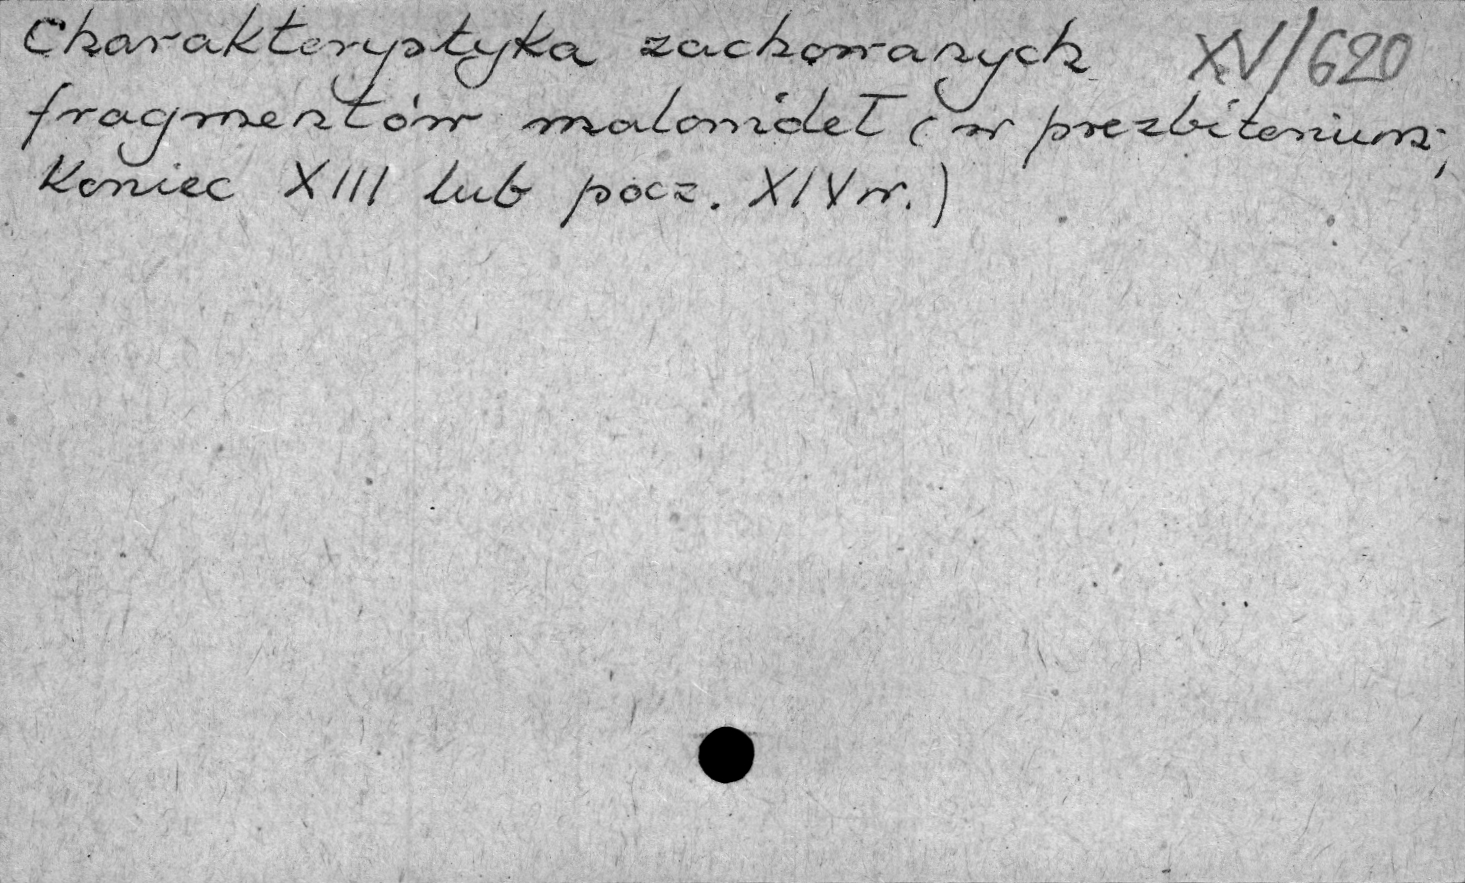 Charakterystyka zachowanych XV/620
fragmentów malowideł (w prezbiterium;
Koniec XIII lub pocz. XIV w.)